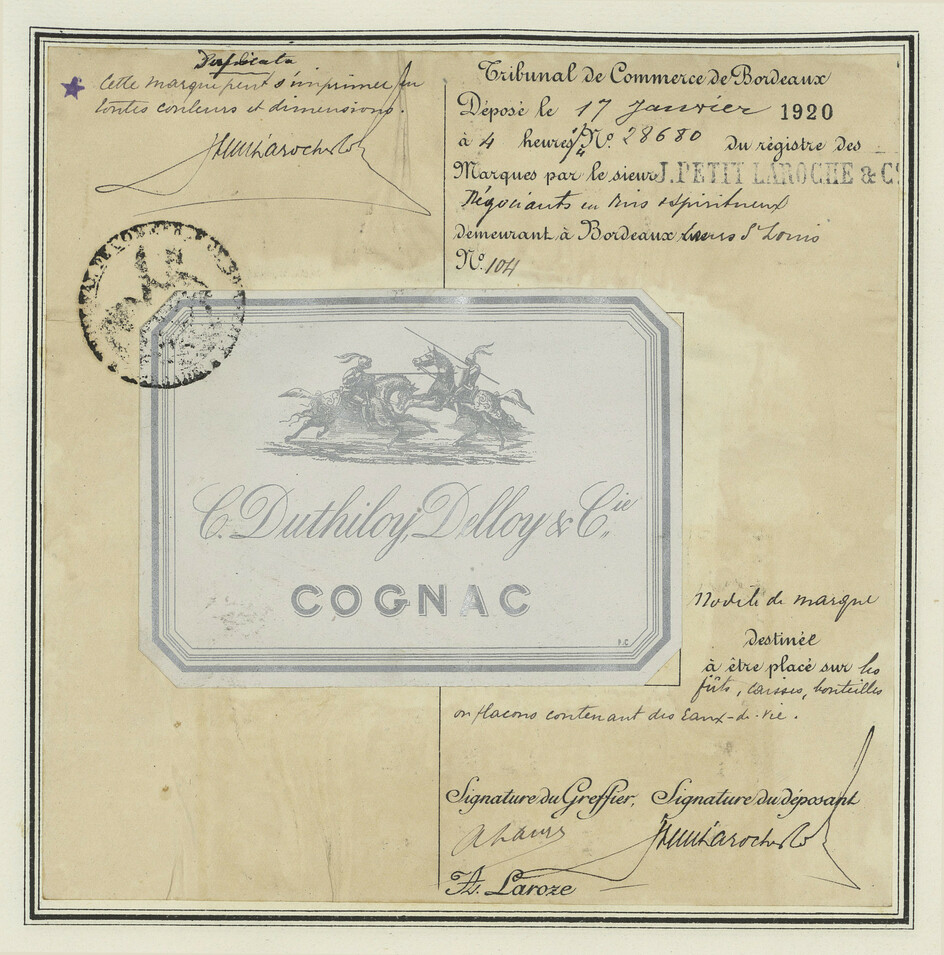 Duplicata
Cette marque peut s'imprimer en
toutes couleurs et dimensions.
Tribunal de Commerce de Bordeaux
Déposé le 17 Janvier 1920
à 4 heures 1/4 No. 28680 du régistre des
Marques par le sieur J. PETIT LAROCHE & Cie
Négociants en Vins & Spiritueux
demeurant à Bordeaux Cours St Louis
No. 104
C. Duthiloy, Delloy & Cie
COGNAC
Modèle de marque
Destinée
à être placé sur les
fûts, caisses, bouteilles
ou flacons contenant des Eaux-de-vie.
Signature du Greffier, Signature du déposant
A. Laroze